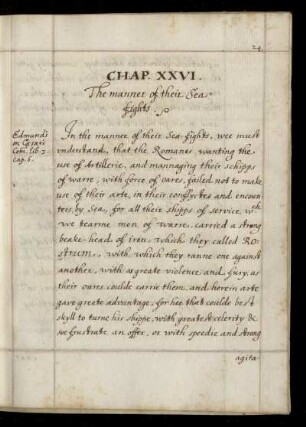 24
CHAP. XXVI.
The manner of their Sea-
fights.
Edmunds
on Cesars
Com: lib:
cap. 6.
In the manner of their Sea-fights, wee must
understand, that the Romanes wanting the
use of Artillerie, and mannaging their shipps
of warre, with force of oares, failed not to make
use of their arte, in their conflyctes and encoun
ters by Sea, for all their shipps of service, wch
we tearme men of warre, carried a strong
beake-head of iron, which they called RO-
STRUM, with which they ranne one against
another, with as greate violence and fury, as
their oares coulde carrie them, and herein arte
gave greate advantage, for hee that coulde best
skyll to turne his shippe, with greatest celerity &
so frustrate an offer, or with speedie and strong
agita